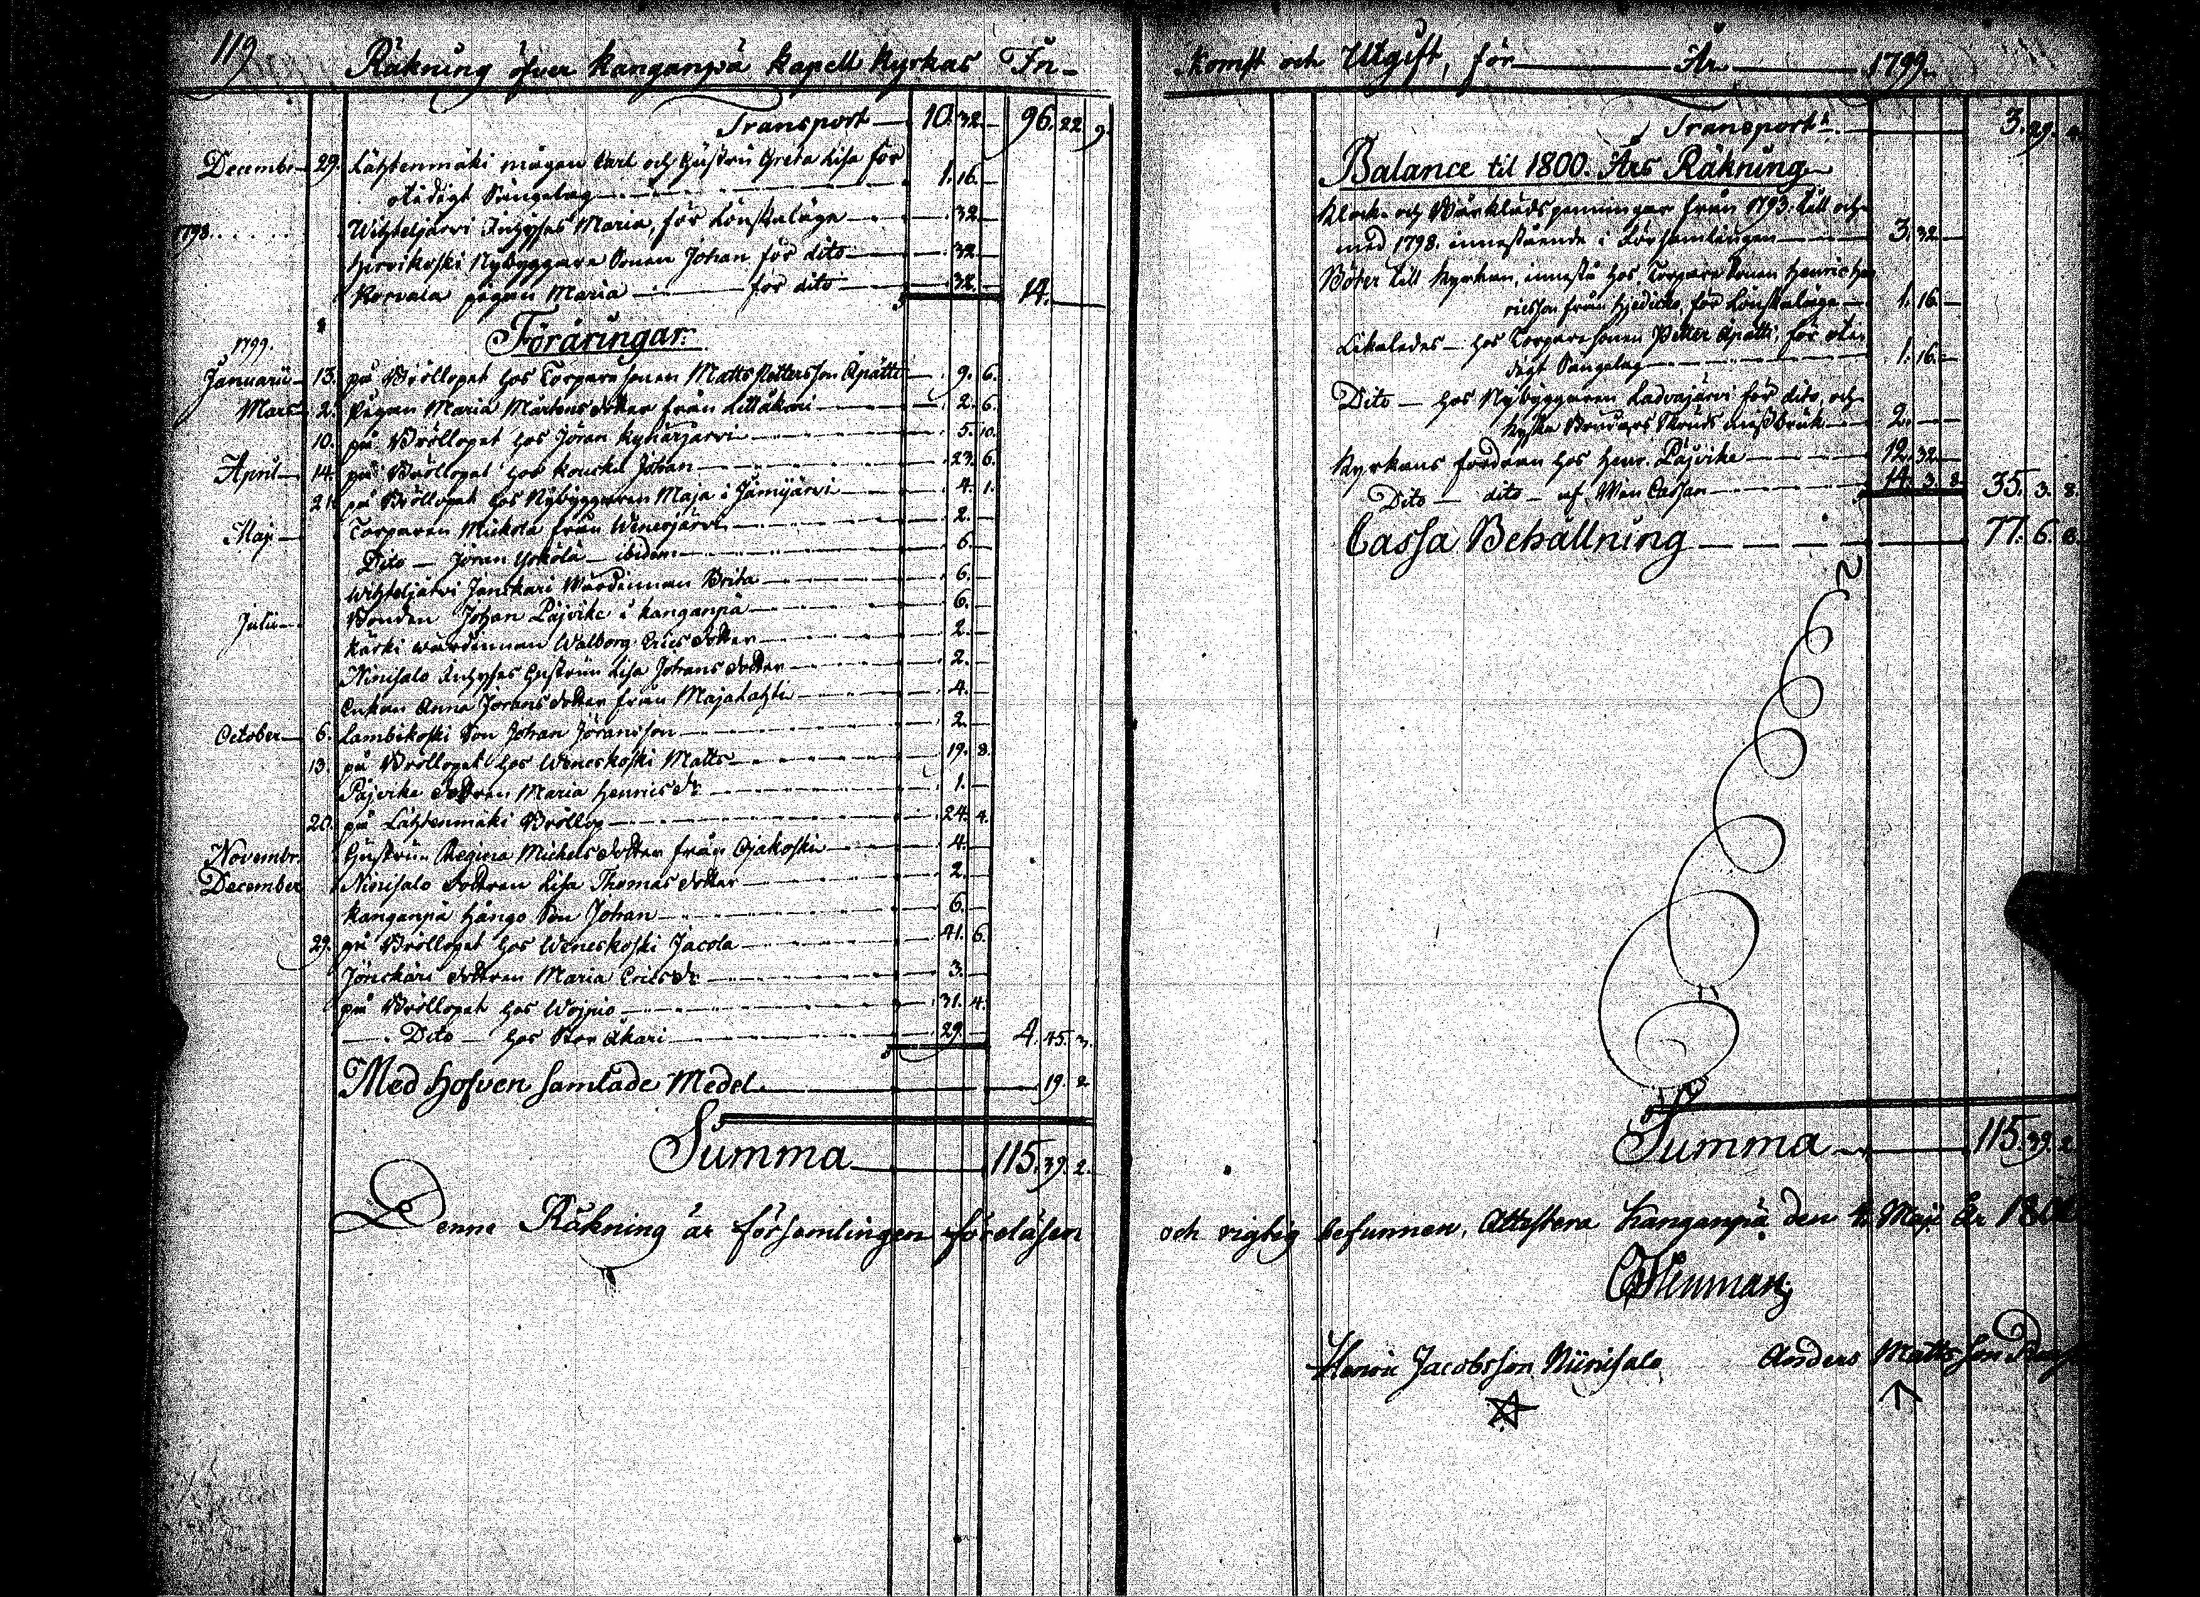 119
Räkning öfver Kanganpä Kapell Kyrkas In-
Transport — 10. 32. — 96. 22. 9.
Decembr — 29. Lähtenmäki mågen Carl och Hustru Greta Lisa för
otidigt Sängelag — 1. 16. —
1798. Wihteljärvi Inhyses Maria, för Lönskaläge — 32. —
Hirvikoski Nybyggare Sonen Johan för dito — 32. —
Korvala pigan Maria — för dito — 32. — 14. —
Föräringar:
1799.
Januarii — 13. på Bröllopet hos Torpare Sonen Matts Pettersson Äpätti — 9. 6.
Mars — 2. Pigan Maria Mårtens dotter från — 2. 6.
10. på Bröllopet hos Jöran Kynärjärvi — 5. 10.
April — 14. på Bröllopet hos Kouska Johan — 23. 6.
21. på Bröllopet hos Nybyggaren Maja i Jämijärvi — 4. 1.
Maji — Torparen Mickola från Wenesjärvi — 2. —
Dito — Jöran Yokola — ibidem — 6. —
Wihteljärvi Wärdinnan Brita — 6. —
Julii — Bonden Johan Päjvike i Kanganpä — 6. —
Kärki Wärdinnan Walborg Erics dotter — 2. —
Niinisalo Inhyses Hustrun Lisa Johans dotter — 2. —
Enkan Anna Jörans dotter från Majalahti — 4. —
October — 6. Lambikoski Son Johan Jöransson — 2. —
13. på Bröllopet hos Weneskoski Matts — 19. 8.
Päjvike dottren Maria Henricsdr — 1. —
20. på Lähtenmäki Bröllop — 24. 4.
Novembr. Hustrun Regina Michels dotter från Ojakoski — 4. —
December Niinisalo dottren Lisa Thomas dotter — 2. —
Kanganpä Hängo Son Johan — 6. —
29. på Bröllopet hos Weneskoski Jacola — 41. 6.
dottren Maria Ericsdr — 3. —
på Bröllopet hos Wojnio — 31. 4.
Dito — hos Stor Äkäri — 29. — 4. 45. 3.
Med Hofven Samlade Medel — 19. 2.
Summa — 115. 39. 2.
Denne Räkning är församlingen föreläsen
komst och Utgift, för — År — 1799.
Transport — 3. 29.
Balance til 1800. Års Räkning
Klock- och Bårkläds penningar från 1793. till och
med 1798. innestående i Församlingen — 3. 32. —
Böter till Kyrkan, innestå hos Torpare Sonen Henric Hen
ricsson från för Lönskaläge — 1. 16. —
Likaledes — hos Torparesonen Petter Äpätti, för oti-
digt Sängelag — 1. 16. —
Dito — hos Nybyggaren Ladvajärvi för dito, och
Kyska Brudars Skruds missbruk — 2. —
Kyrkans fordran hos Henr. Päjvike — 12. 32. —
Dito — dito — af Win Cassan — 14. 3. 8. 35. 3. 8.
Cassa Behållning — 77. 6.
Summa — 115. 39. 2.
och rigtig befunnen, Attestera Kanganpä den Maji År
Henric Jacobsson Niinisalo Anders Mattsson